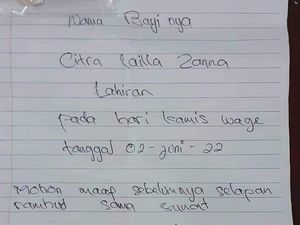 Nama Bayi nya
Citra lailla Zanna
Lahiran
pada hari kamis wage
tanggal 02-juni-22
Mohon maaf sebelumnya selapan
rambut sama sunat